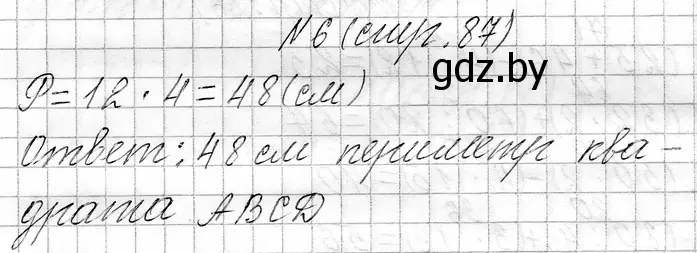 №6 (стр. 87)
gdz.by
P=12·4=48(см)
Ответ: 48 см периметр ква-
драта ABCD